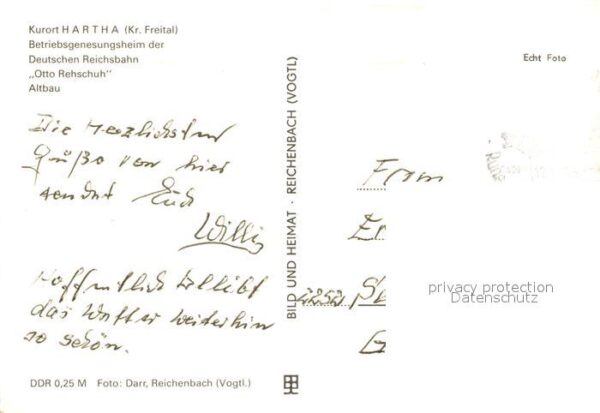 Kurort HARTHA (Kr. Freital)
Betriebsgenesungsheim der
Deutschen Reichsbahn
„Otto Rehschuh"
Altbau
Die Herzlichsten
Grüße von hier
sendet Euch
Willi
Hoffentlich bleibt
das Wetter weiterhin
so schön.
DDR 0,25 M Foto: Darr, Reichenbach (Vogtl.)
BILD UND HEIMAT · REICHENBACH (VOGTL)
Echt Foto
privacy protection
Datenschutz